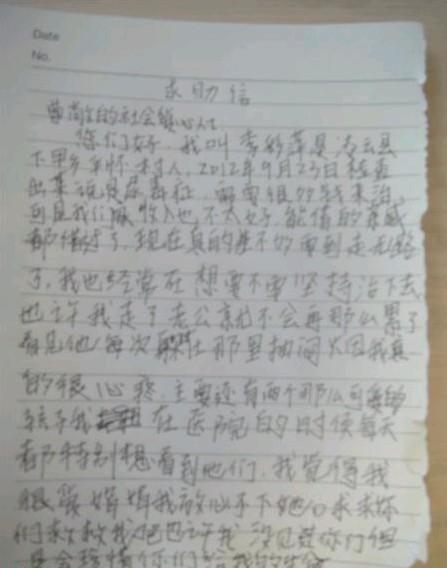 Date
No.
求助信
尊敬的社会爱心人
您们好,我叫李彩萍是凌云县
下甲乡平怀村人,2012年9月23日检查
出来说是尿毒症,需要很多钱来治,
可是我们收入也不太好,能借的亲戚
都借过了,现在真的差不多要到走乱路
了,我也经常在想要不要坚持治下去
也许我走了老公就不会再那么累了
看见他每次躲在那里抽闷火因我真
的很心疼,主要还有两个那么可爱的
孩子我在医院的时候每天
都特别想看到他们,我觉得我
很爱她我放心不下她们求求你
们救救我吧也许我没见过你们但
是会珍惜你们给我的生命